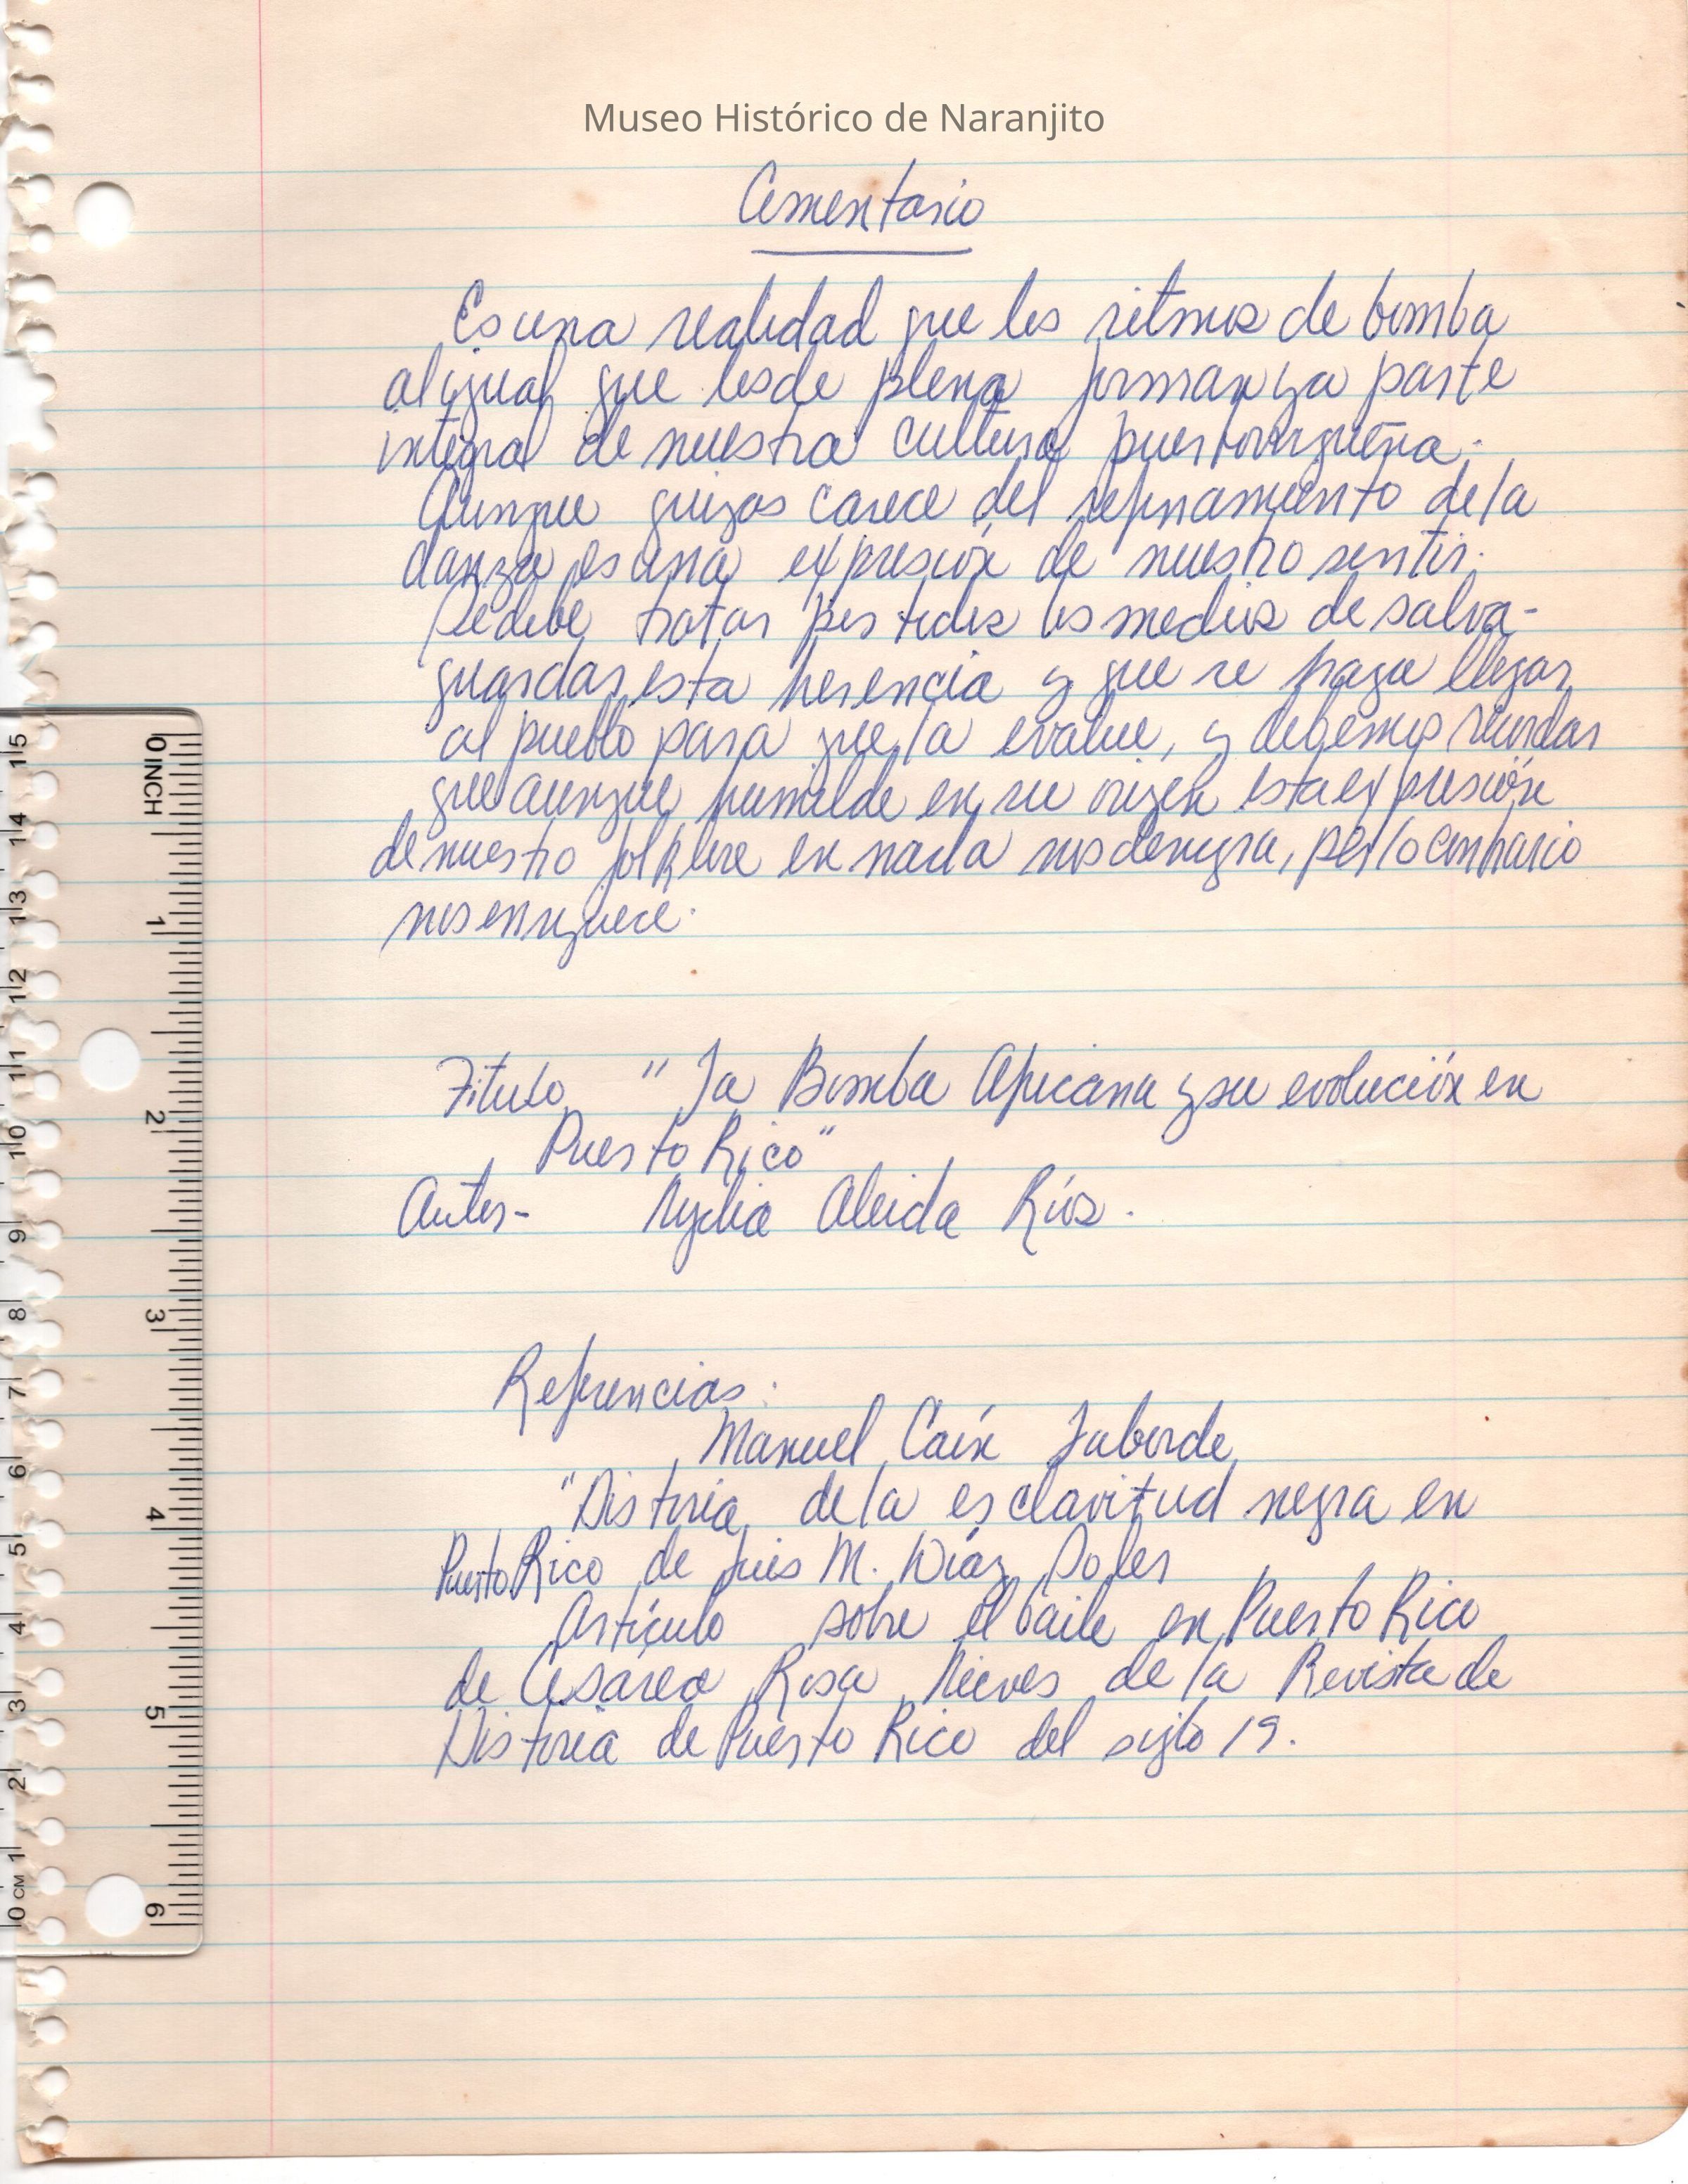 Museo Histórico de Naranjito
Comentario
Es una realidad que los ritmos de bomba
al igual que los de plena forman ya parte
integral de nuestra cultura puertorriqueña.
Aunque quizas carece del refinamiento de la
danza es una expresión de nuestro sentir.
Se debe tratar por todos los medios de salva-
guardar esta herencia y que se haga llegar
al pueblo para que la evalue, y debemos recordar
que aunque humilde en su origen esta expresión
de nuestro folklore en nada nos denigra, por lo contrario
nos enriquece.
Titulo "La Bomba Africana y su evolución en
Puerto Rico"
Autor- Nydia Aleida Ríos.
Referencias:
Manuel Laborde
"Historia de la esclavitud negra en
Puerto Rico de Luis M. Díaz Soler
Artículo sobre el baile en Puerto Rico
de Cesareo Rosa Nieves de la Revista de
Historia de Puerto Rico del siglo 19.
0 INCH 1 2 3 4 5 6
15 14 13 12 11 10 9 8 7 6 5 4 3 2 1 0 CM